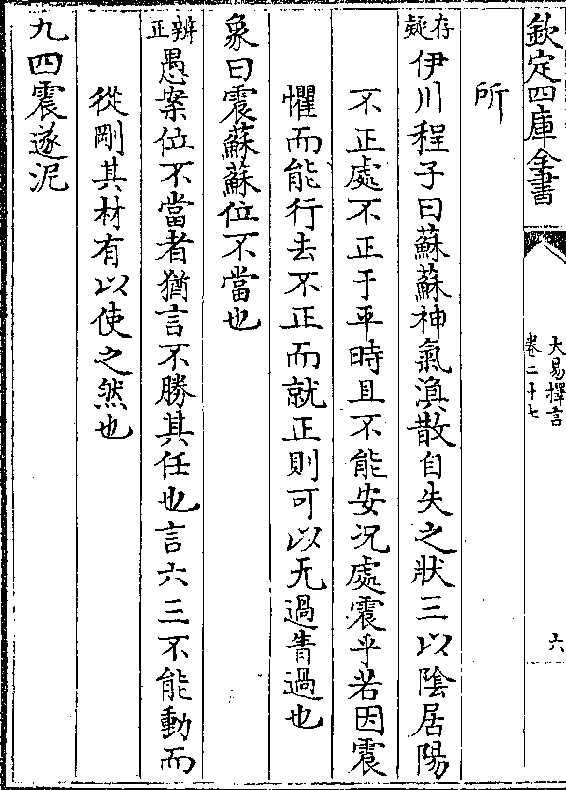 欽定四庫全書
大易擇言
卷二十七
六
所
存疑伊川程子曰蘇蘇神氣渙散自失之狀三以陰居陽
不正處不正于平時且不能安况處震乎若因震
懼而能行去不正而就正則可以无過眚過也
象曰震蘇蘇位不當也
辨正愚案位不當者猶言不勝其任也言六三不能動而
從剛其材有以使之然也
九四震遂泥